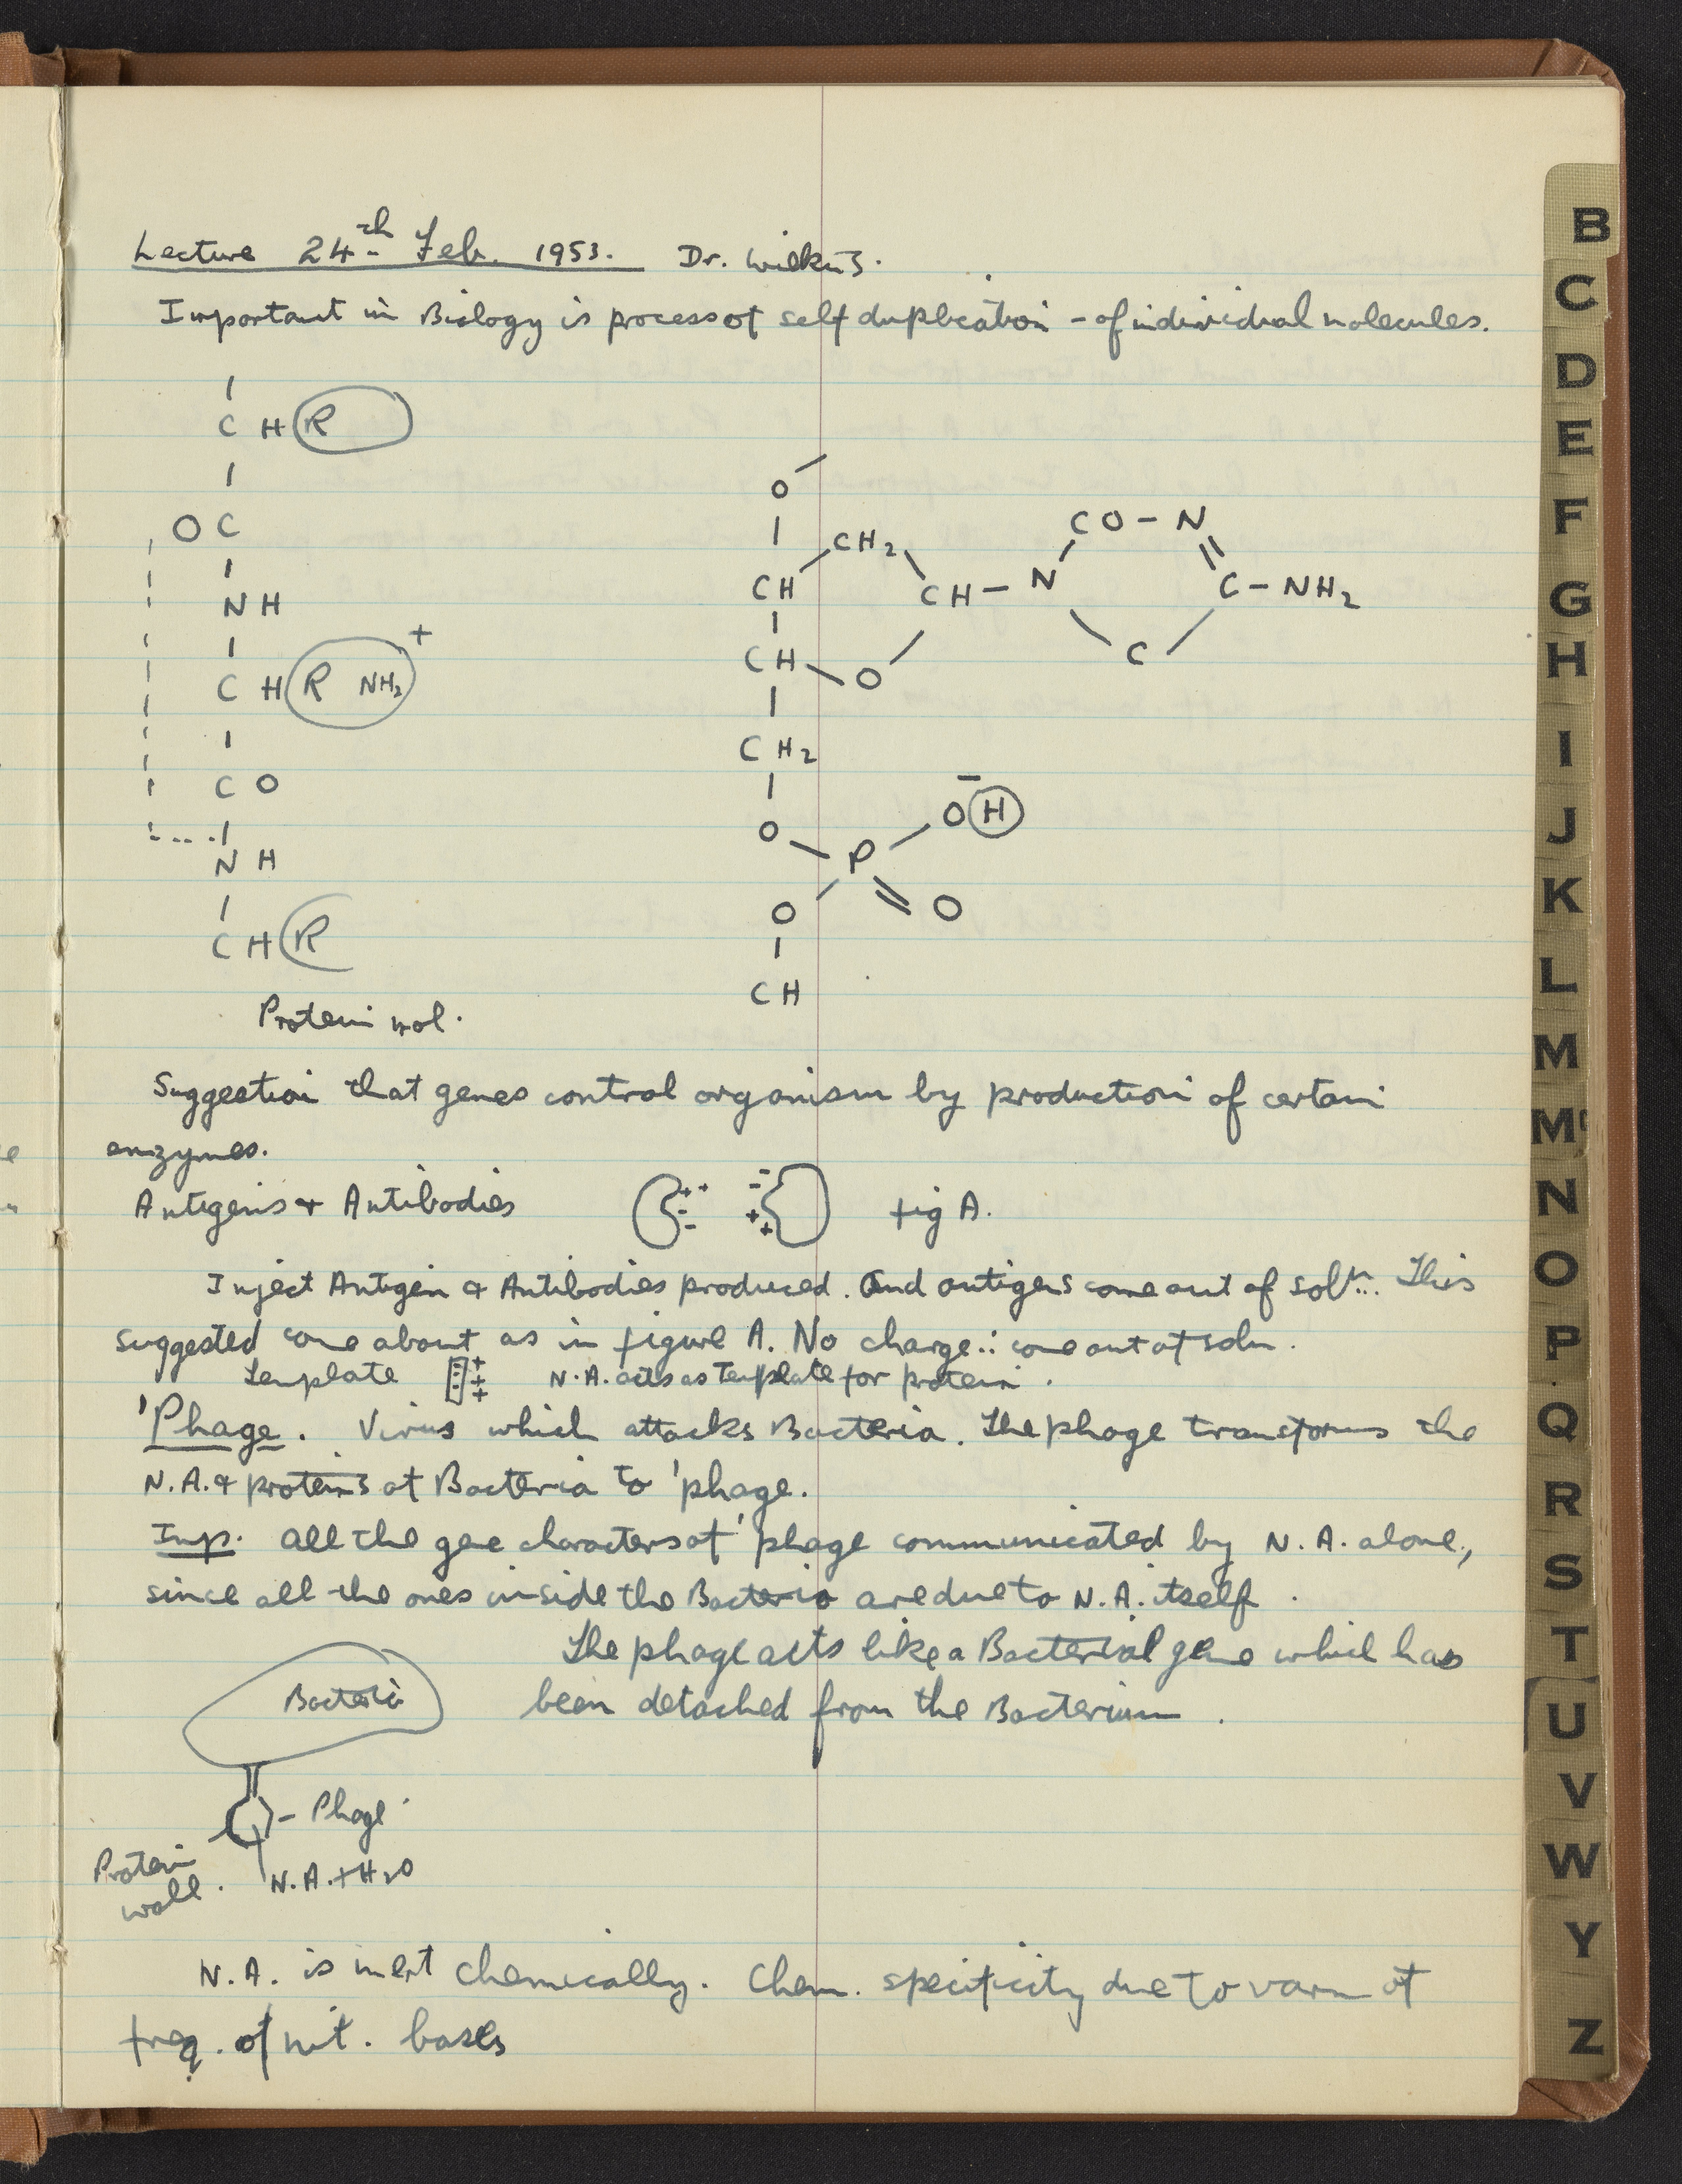 Lecture 24th Feb. 1953. Dr. Wilkins.
Important in Biology is process of self duplication - of individual molecules.
C H R
O C
N H
C H R NH2 +
C O
N H
C H R
Protein mol.
O
CH2
CH
CH - N
CO - N
C - NH2
C
CH
O
CH2
O
P
O H
O
O
CH
Suggestion that genes control organism by production of certain
enzymes.
Antigens + Antibodies fig A.
Inject Antigen & Antibodies produced. And antigens come out of soln. This
suggested come about as in figure A. No charge ∴ come out of soln.
Template N.A. acts as template for protein.
'Phage. Virus which attacks Bacteria. The phage transforms the
N.A. & proteins of Bacteria to 'phage.
Imp. All the gene characters of 'phage communicated by N.A. alone,
since all the ones inside the Bacteria are due to N.A. itself.
The phage acts like a Bacterial gene which has
been detached from the Bacterium.
Bacteria
- Phage
Protein
wall.
N.A. + H2O
N.A. is inert chemically. Chem. specificity due to varn of
freq. of nit. bases
B
C
D
E
F
G
H
I
J
K
L
M
Mc
N
O
P
Q
R
S
T
U
V
W
Y
Z